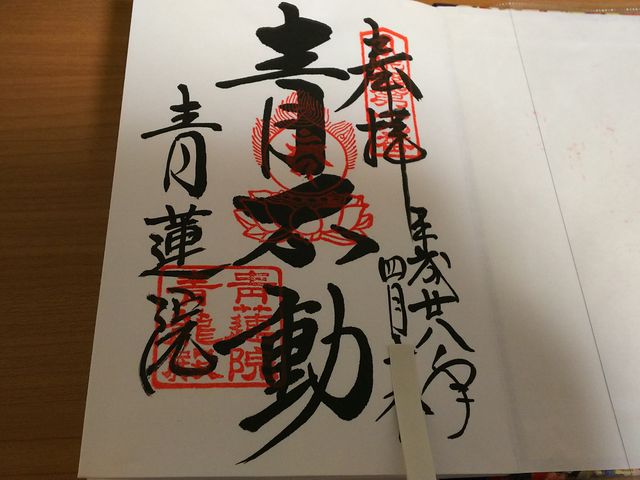 奉拝
平成廿八年
四月
青不動
青蓮院
青蓮院